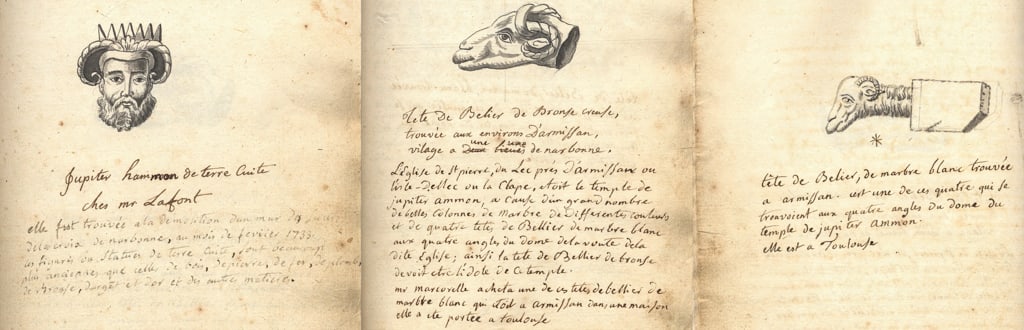 Jupiter hammon de terre Cuite
ches mr Lafont
elle fust trouvée a la démolition dun mur du
de narbonne, au mois de fevrier 1733.
les figures ou Statues de terre Cuite, sont beaucoup
plus anciennes que celles de bois, de pierre, de fer, de plomb,
de Bronse, dargent et dor et des autres matieres.
tete De Belier de Bronse creuse,
trouvée aux environs Darmissan,
vilage a une de narbonne.
L'Eglise de St pierre, du Lec prés d'armissan ou
ou la Clape, etoit le temple de
jupiter ammon, a Cause d'un grand nombre
de belles colonnes de marbre de differentes couleurs
et de quatre tetes de Bellier de marbre blanc
aux quatre angles du dome de la voute de la
dite Eglise; ainsi la tete de Bellier de bronse
devoit etre lidole de Ce temple.
mr marcorelle acheta une de ces tetes de bellier de
marbre blanc qui etoit a armissan dans une maison
elle a ete portée a toulouse
tete de Belier, de marbre blanc trouvée
a armisan. est une de ces quatre qui se
trouvoient aux quatre angles du dome du
temple de jupiter ammon.
elle est a Toulouse